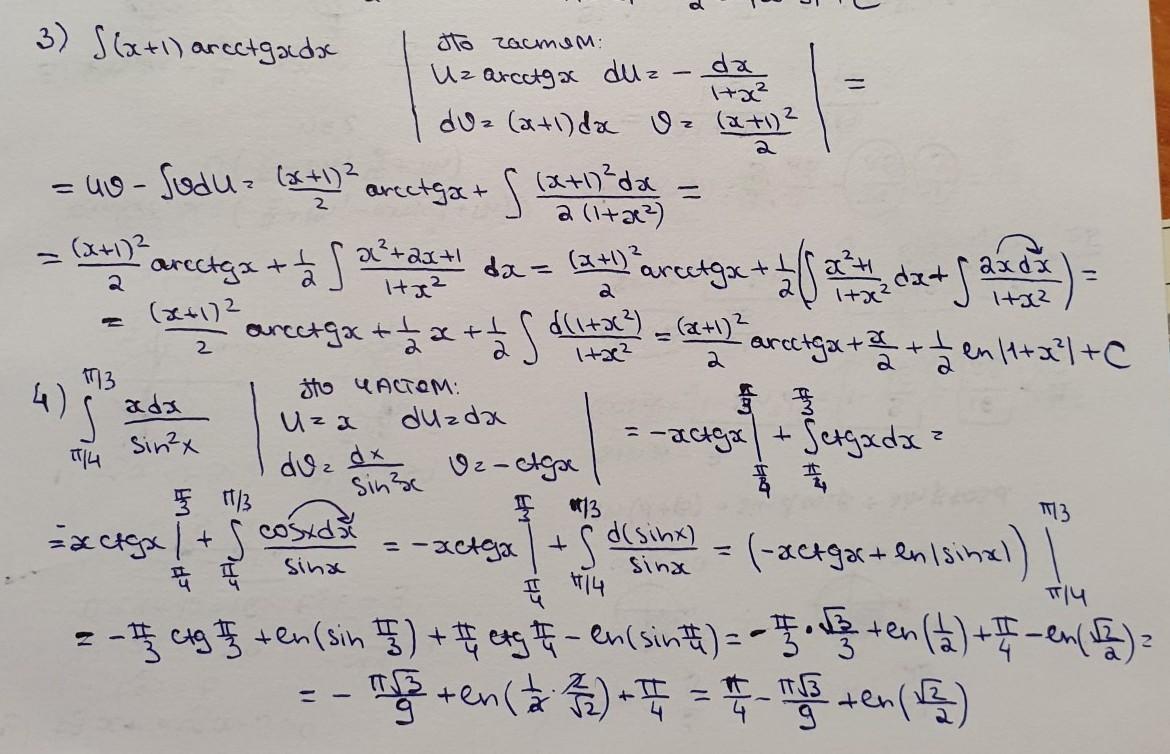 3) ∫(x+1) arcctgx dx | По частям: U = arcctgx dU = - dx/(1+x²) dv = (x+1)dx v = (x+1)²/2 | =
= uv - ∫vdU = (x+1)²/2 arcctgx + ∫ (x+1)²dx / 2(1+x²) =
= (x+1)²/2 arcctgx + 1/2 ∫ (x²+2x+1)/(1+x²) dx = (x+1)²/2 arcctgx + 1/2 (∫ (x²+1)/(1+x²) dx + ∫ 2xdx/(1+x²)) =
= (x+1)²/2 arcctgx + 1/2 x + 1/2 ∫ d(1+x²)/(1+x²) = (x+1)²/2 arcctgx + x/2 + 1/2 ln|1+x²| + C
4) ∫_{π/4}^{π/3} xdx/sin²x | По частям: U = x dU = dx dv = dx/sin²x v = -ctgx | = -xctgx |_{π/4}^{π/3} + ∫_{π/4}^{π/3} ctgxdx =
= -xctgx |_{π/4}^{π/3} + ∫_{π/4}^{π/3} cosxdx/sinx = -xctgx |_{π/4}^{π/3} + ∫_{π/4}^{π/3} d(sinx)/sinx = (-xctgx + ln|sinx|) |_{π/4}^{π/3}
= -π/3 ctg π/3 + ln(sin π/3) + π/4 ctg π/4 - ln(sin π/4) = -π/3 · √3/3 + ln(1/2) + π/4 - ln(√2/2) =
= - π√3/9 + ln(1/2 · 2/√2) + π/4 = π/4 - π√3/9 + ln(√2/2)